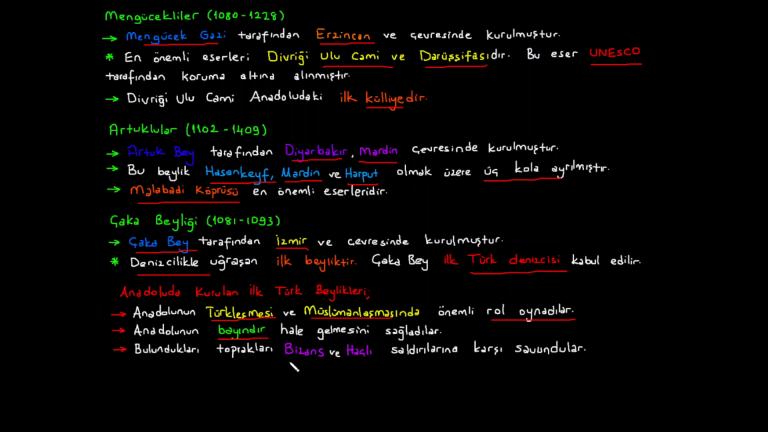 Mengücekliler (1080-1228)
→ Mengücek Gazi tarafından Erzincan ve çevresinde kurulmuştur.
* En önemli eserleri Divriği Ulu Cami ve Darüşşifasıdır. Bu eser UNESCO
tarafından koruma altına alınmıştır.
→ Divriği Ulu Cami Anadoludaki ilk külliyedir.
Artuklular (1102-1409)
→ Artuk Bey tarafından Diyarbakır, Mardin çevresinde kurulmuştur.
→ Bu beylik Hasankeyf, Mardin ve Harput olmak üzere üç kola ayrılmıştır.
→ Malabadi Köprüsü en önemli eserleridir.
Çaka Beyliği (1081-1093)
→ Çaka Bey tarafından İzmir ve çevresinde kurulmuştur.
* Denizcilikle uğraşan ilk beyliktir. Çaka Bey ilk Türk denizcisi kabul edilir.
Anadoluda Kurulan İlk Türk Beylikleri;
→ Anadolunun Türkleşmesi ve Müslümanlaşmasında önemli rol oynadılar.
→ Anadolunun bayındır hale gelmesini sağladılar.
→ Bulundukları toprakları Bizans ve Haçlı saldırılarına karşı savundular.